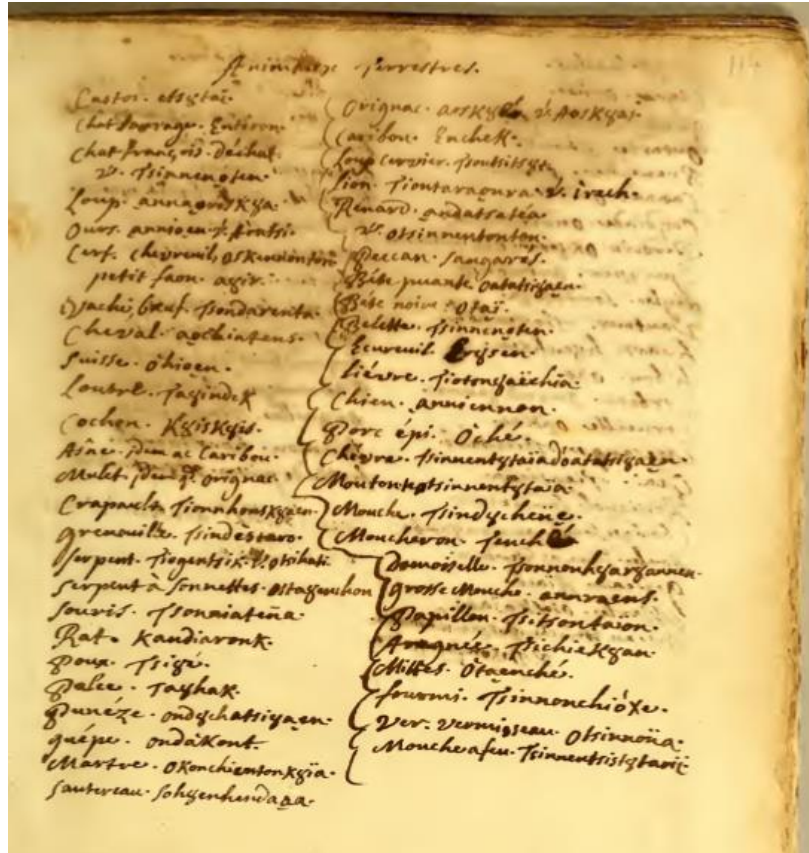 Animaux Terrestres.
114
Castor. etsȣtaï.
Chat sauvage. Entiron.
Chat françois. déchat.
Tsinnenoten.
Loup. annaariskȣa.
Ours. annioen
Cerf, chevreuil, oskennonton
petit faon. agir.
Vache, bœuf. Tsondarenta.
Cheval. aochiatens.
Suisse. ohioen.
Loutre. Taȣindek
Cochon. Kȣiskȣis.
Asne. idem ac Caribou.
Mulet. idem orignac.
Crapault. Tionnhonskȣaen.
Grenouille. Tsindestaro.
Serpent. Tiogentsik. otsihati.
Serpent à Sonnettes. ostagenchon
Souris. Tsonaiateña.
Rat. Kandiaronk.
Poux. Tsigé.
Pulce. Taȣhak.
Punéze. ondȣchatsiȣaen.
Guépe. ondäkont.
Martre. okonchientonkȣïa.
Sautereau. Sohȣenhendaaa.
Orignac. ȣ Aoskȣai.
Caribou. Enchek.
Loup Cervier. Tsoutsitȣt.
Lion. Tiontaraoura. ȣ. irech.
Renard. andatsatéa.
otsinnentonton.
Peccan. Sangares.
Béte puante. oatatsiȣaen.
Béte noire. otaï.
Belette. Tsinnenoten.
Ecureuil.
Liévre. Tiotonȣaëchia.
Chien. anniennon.
Porc épi. Oché.
Chévre. Tsinnentȣtaïadoatatsiȣaen.
Mouton. otsinnentȣtaïa.
Mouche. Tsindȣcheñe.
Moucheron.
Demoiselle. Tsonnonhȣarȣannen.
Grosse Mouche. annraent.
Papillon. Tsitsontaïon.
Aragnée. Tsichiekȣan.
Mittes. Otaenché.
fourmi. Tsinnonchiöxe.
Ver. vermisseau. Otsinnoña.
Mouche a feu. Tsinnentsistȣtarij